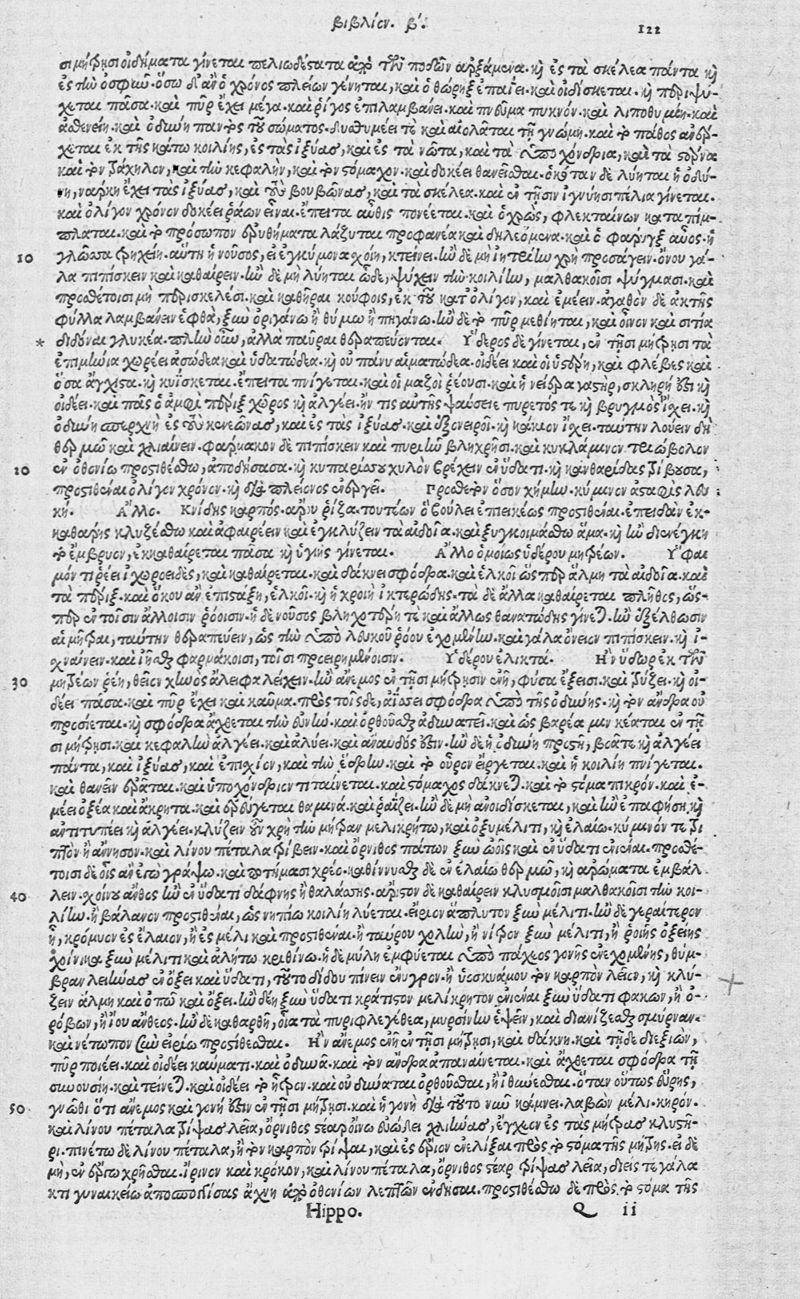 βιβλίον. β΄. 122
σι μήτρῃσι οἰδήματα γίνεται πελιωδέστατα ἀπὸ τῶν ποδῶν ἀρξάμενα. καὶ ἐς τὰ σκέλεα πάντα καὶ
ἐς τὴν ὀσφῦν. ὅσῳ δ' ἂν ὁ χρόνος πλείων γένηται, καὶ ὁ θώρηξ ἐπαΐει. καὶ οἰδίσκεται. καὶ περιψύ-
χεται πᾶσα. καὶ πῦρ ἔχει μέγα. καὶ ῥίγος ἐπιλαμβάνει. καὶ πνεῦμα πυκνόν. καὶ λιποθυμίη. καὶ
ἀσθενείη. καὶ ὀδύνη παντὸς τοῦ σώματος. δυσθυμέει τὲ καὶ αἰολᾶται τῇ γνώμῃ. καὶ τὸ πάθος ἀνέρ-
χεται ἐκ τῆς κάτω κοιλίης, ἐς τὰς ἰξύας, καὶ ἐς τὰ νῶτα, καὶ τὰ ὑποχόνδρια, καὶ τὰ στέρνα
καὶ τὸν τράχηλον, καὶ τὴν κεφαλὴν, καὶ τὸν στόμαχον. καὶ δοκέει θανέεσθαι. ὁκόταν δὲ λύηται ἡ ὀδύ-
νη, νάρκη ἔχει τὰς ἰξύας, καὶ τοὺς βουβῶνας, καὶ τὰ σκέλεα. καὶ ἐν τῇσιν ἰγνύῃσι πέλια γίνεται.
καὶ ὀλίγον χρόνον δοκέει ῥᾴων εἶναι. ἔπειτα αὖθις πονέεται. καὶ ὁ χρὼς, φλεκταίνων καταπίμ-
πλαται. καὶ τὸ πρόσωπον ἐρυθήματα λάζυται προφανέα καὶ δηλεόμενα. καὶ ὁ φάρυγξ αὖος. ἡ
10 γλῶσσα τρηχείη. αὕτη ἡ νοῦσος, εἰ ἐγκύμονα σχοίη, κτείνει. ἢν δὲ μὴ προσάγειν. ὄνου γά-
λα πιπίσκειν καὶ καθαίρειν. ἢν δὲ μὴ λύηται ὧδε, ψύχειν τὴν κοιλίην, μαλθακοῖσι ψύγμασι. καὶ
προσθέτοισι μὴ περισκελέσι. καὶ καθῆραι κούφοις, ἐκ τοῦ κατ' ὀλίγον, καὶ ἐμέειν. ἀγαθὸν δὲ ἀκτῆς
φύλλα λαμβάνειν ἑφθὰ, ξὺν ὀριγάνῳ ἢ θύμῳ ἢ πηγάνῳ. ἢν δὲ τὸ πῦρ μεθίηται, καὶ οἶνον καὶ σιτία
* διδόναι γλυκέα. πλὴν οὕτω, ἀλλὰ παῦραι θεραπεύονται. Ὕδερος δὲ γίνεται, ἐν τῇσι μήτρῃσι τὰ
ἐπιμήνια χωρέει ἀσώδεα καὶ ὑδατώδεα. καὶ οὐ πάνυ αἱματώδεα. οἰδέει καὶ οἱ ὑστέρη, καὶ φλέβες καὶ
ὅσα ἄγχιστα. καὶ κυΐσκεται. ἔπειτα πνίγεται. καὶ οἱ μαζοὶ ῥέουσι. καὶ ἡ νείαιρα γαστὴρ, σκληρή ἐστι καὶ
οἰδέει. καὶ πᾶς ὁ ἀμφὶ πέριξ χῶρος καὶ ἀλγέει. ἤν τις αὐτῆς ψαύσειε πυρετός τε καὶ βρυγμὸς ἴσχει. καὶ
ὀδύνη σπερχνὴ ἐς τοὺς κενεῶνας, καὶ ἐς τὰς ἰξύας. καὶ κάκιον ἴσχει. ταύτην λούειν δὴ
θερμῷ καὶ χλιαίνειν. φάρμακον δὲ πιπίσκειν καὶ πυριῆν βληχρῇσι. καὶ κυκλάμινον τριώβολον
20 ἐν ὀθονίῳ προστιθέσθω, ἀποδήσασα. καὶ κυπαρίσσου χυλὸν βρέχειν ἐν ὕδατι. καὶ κανθαρίδας τρίβουσα,
προστίθεσθαι ὀλίγον χρόνον. καὶ διὰ πλείονος ἐνεργεῖ. Πρόσθετον ὅσον χήμην. κύμινον ἀσταφὶς λευ
κή. Ἄλλο. Κνίδης καρπὸς. ἄρου ῥίζα. τουτέων ὃ βούλει ἐπιεικέως προστίθεσθαι. ἐπειδὰν ἐκ-
καθαρῇς κλυζέσθω καὶ ἀφαιρέειν καὶ ἐγκλύζειν τὰ αἰδοῖα. καὶ ξυγκοιμάσθω ἅμα. καὶ ἢν διενέγκῃ
τὸ ἔμβρυον, ἐκκαθαίρεται πᾶσα καὶ ὑγιὴς γίνεται. Ἄλλο ὁμοίως ὑδέρου μητρέων. Ὕφαι
μόν τι ῥέει ἰχωροειδὲς, καὶ καθαίρεται. καὶ δάκνει σφόδρα. καὶ ἑλκοῖ ὥσπερ ἅλμη τὰ αἰδοῖα. καὶ
τὰ πέριξ. καὶ ὅκου ἂν ἐπιστάξῃ, ἑλκοῖ. καὶ ἡ χροιὴ ἰκτερώδης. τὰ δὲ ἄλλα καθαίρεται πλῆθος, ὥς-
περ ἐν τοῖσιν ἄλλοισιν ῥόοισιν. ἡ δὲ νοῦσος βληχροτέρη τὲ καὶ ἄλλως θανατώδης γίνεται. ἢν ἐξέλθωσιν
αἱ μῆτραι, ταύτην θεραπεύειν, ὡς τὴν ὑπὸ λευκοῦ ῥόου ἐχομένην. καὶ γάλα ὄνειον πιπίσκειν. καὶ ἰ-
σχναίνειν. καὶ ἰῆσθαι φαρμάκοισι, τοῖσι προειρημένοισιν. Ὑδέρου ἑλικτά. Ἢν ὕδωρ ἐκ τῶν
30 μητρέων ῥέῃ, θεῖον χήνεος ἄλειφα λείχειν. ἢν ἄνεμος ἐν τῇσι μήτρῃσιν ἐνῇ, φῦσα ἔξεισι. καὶ τρύζει. καὶ οἰ-
δέει πᾶσα. καὶ πῦρ ἔχει καὶ καῦμα. πρὸς τοῖς δὲ, ἀΐσσει σφόδρα ὑπὸ τῆς ὀδύνης. καὶ τὸν ἄνδρα οὐ
προσίεται. καὶ σφόδρα ἄχθεται τὴν εὐνὴν. καὶ ὀρθοῦσθαι ἀδυνατεῖ. καὶ ὡς βαρέα μιν κέαται ἐν τῇ
σι μήτρῃσι. καὶ κεφαλὴν ἀλγέει. καὶ ἀλύει. καὶ ἄναυδός ἐστιν. ἢν δὲ ἡ ὀδύνη προσῇ, βοᾶτε καὶ ἀλγέει
πάντα, καὶ ἰξύας, καὶ ἐπισχίον, καὶ τὴν ἕδρην. καὶ τὸ οὖρον εἴργεται. καὶ ἡ κοιλίη πνίγεται.
καὶ θανεῖν ἐρᾶται. καὶ ὑποχόνδριόν τι ταίνεται. καὶ στόμαχος δάκνεται. καὶ τὸ στόμα πικρόν. καὶ ἐ-
μέει ὀξέα καὶ ἄκρητα. καὶ ἐρεύγεται θαμινά. καὶ ῥαΐζει. ἢν δὲ μὴ ἀνοιδίσκεται, καὶ ἢν ἐπαφήσῃ καὶ
ἀντιτυπέει καὶ ἀλγέει. κλύζειν οὖν χρὴ τὴν μῆτραν μελικρήτῳ, καὶ ὀξυμέλιτι, καὶ ἐλαίῳ. κύμινόν τε τρι
πτὸν ἢ ἄννησον. καὶ λίνου πέταλα τρίβειν. καὶ ὄρνιθος πάτων ξὺν ὠοῖς καὶ ἐν ὕδατι ἐνιέναι. προσθέ-
τοισι δὲ οἷς ἂν ἐγὼ γράψω. καὶ κρέας. καθίννυσθαι δὲ ἐν ἐλαίῳ θερμῷ, καὶ ἀρώματα ἐμβάλ
40 λειν. σχοίνου ἄνθος ἢν ἐν ὕδατι δάφνης ἢ θαλάσσης. ἄριστον δὲ καθαίρειν κλυσμοῖσι μαλθακοῖσι τὴν κοι-
λίην. ἢ βάλανον προστίθεσθαι, ὡς νηπίῳ κοιλίη λύεται. εἴριον ἄπλυτον ξὺν μέλιτι. ἢν δὲ γεραίτερον
ᾖ, κρόμυον ἐς ἔλαιον, ἢ ἐς μέλι καὶ προστίθεσθαι. ἢ ταύρου χολὴν, ἢ νίτρον ξὺν μέλιτι, ἢ ῥοιῆς ὀξείης
χοίνικα ξὺν μέλιτι καὶ ἀλήτῳ κριθίνῳ. ἢ δὲ μύλη ἐμφύεται ὑπὸ πάχεος γονῆς ἐνεχομένης, θύμ-
βραν λειήνας ἐν ὄξει καὶ ὕδατι, τοῦτο δίδου πίνειν ἔνυγρον. ἢ ὑοσκυάμου τὸν καρπὸν λεῖον, καὶ κλύ-
ζειν ἅλμῃ καὶ ὀπῷ καὶ ὄξει. ἢν δέῃ ξὺν ὕδατι κράτιστον μελίκρητον ἐνιέναι ξὺν ὕδατι φακῶν, ἢ ὀ-
ρόβων, ἢ ἴου ἄνθεος. ἢν δὲ καθαρθῇ, οἷα τὰ πυριφλεγέθεα, μυρσίνην ἕψειν, καὶ διανίζεσθαι σμύρναν.
καὶ νέτωπον ξὺν εἰρίῳ προστίθεσθαι. Ἢν ἄνεμος ἐνῇ ἐν τῇσι μήτρῃσι, καὶ δάκνῃ. καὶ τῇδε διεξιὼν,
πῦρ ποιέει. καὶ οἰδέει καύματι. καὶ ὀδύνᾳ. καὶ τὸν ἄνδρα ἀπαναίνεται. καὶ ἄχθεται σφόδρα τῇ
συνουσίῃ. καὶ τείνεται. καὶ οἰδέει τὸ ἦτρον. καὶ οὐ δύναται ὀρθοῦσθαι, ἢ ἰθύνεσθαι. ὅταν οὕτως εὕρῃς,
50 γνῶθι ὅτι ἄνεμος καὶ γονή ἐστιν ἐν τῇσι μήτρῃσι. καὶ ἡ γονὴ διὰ τοῦτο νῦν κάμνει. λαβὼν μέλι. κηρόν.
καὶ λίνου πέταλα τρίψας λεῖα, ὄρνιθος στέαρ οἴνῳ εὐώδει χλιήνας, ἔγχεον ἐς τὰς μήτρας κλυστῆ-
ρι. πινέτω δὲ λίνου πέταλα, ἢ τὸν καρπὸν τρίψαι, καὶ ἐς εἴριον ἐνελίξαι πρὸς τὸ στόμα τῆς μήτρης. εἰ δὲ
μὴ, ἐν ἔργῳ χρῆσθαι. ἴρινον καὶ κρόκον, καὶ λίνου πέταλα, ὄρνιθος στέαρ τρίψας λεῖα, διεὶς τε γάλα
κτι γυναικείῳ ἄχνῃ ἀπὸ ὀθονίων λεπτῶν ἐνδῆσαι. προστιθέσθω δὲ πρὸς τὸ στόμα τῆς
Hippo. Q ii